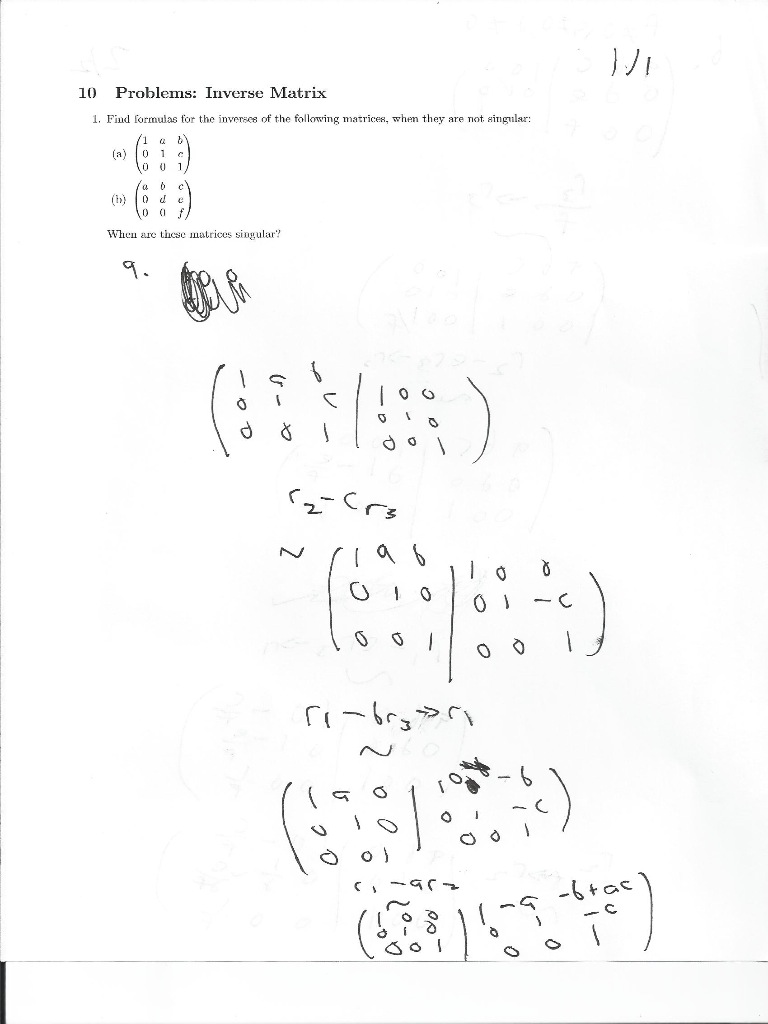 1/1
10 Problems: Inverse Matrix
1. Find formulas for the inverses of the following matrices, when they are not singular:
(a)
1 a b
0 1 c
0 0 1
(b)
a b c
0 d e
0 0 f
When are these matrices singular?
a.
( 1 a b | 1 0 0 )
0 1 c | 0 1 0
0 0 1 | 0 0 1
r2 - cr3
~ ( 1 a b | 1 0 0 )
0 1 0 | 0 1 -c
0 0 1 | 0 0 1
r1 - br3 → r1
~
( 1 a 0 | 1 0 -b )
0 1 0 | 0 1 -c
0 0 1 | 0 0 1
r1 - ar2
~
( 1 0 0 | 1 -a -b+ac )
0 1 0 | 0 1 -c
0 0 1 | 0 0 1